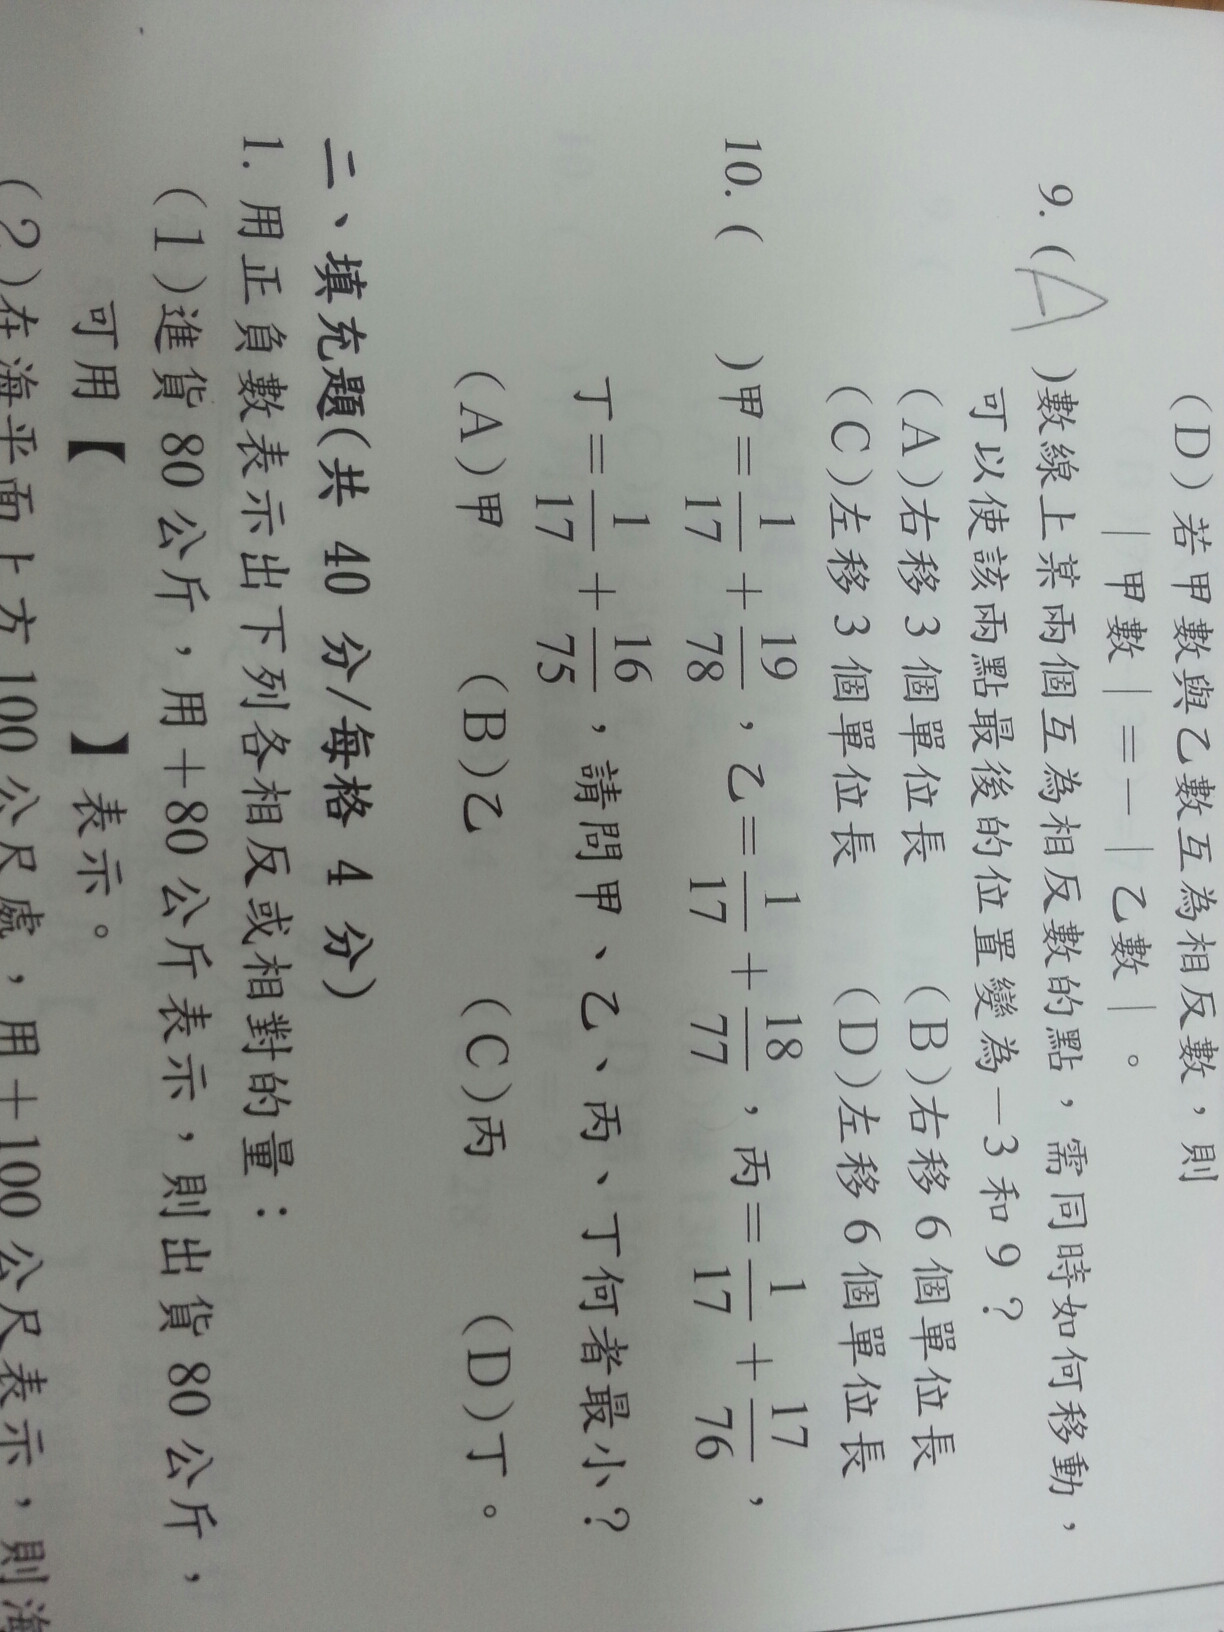 (D)若甲數與乙數互為相反數，則
|甲數|=-|乙數|。
9.(A)數線上某兩個互為相反數的點，需同時如何移動，
可以使該兩點最後的位置變為-3和9？
(A)右移3個單位長 (B)右移6個單位長
(C)左移3個單位長 (D)左移6個單位長
10.( )甲=1/17+19/78，乙=1/17+18/77，丙=1/17+17/76，
丁=1/17+16/75，請問甲、乙、丙、丁何者最小？
(A)甲 (B)乙 (C)丙 (D)丁。
二、填充題(共 40 分/每格 4 分)
1.用正負數表示出下列各相反或相對的量：
(1)進貨80公斤，用+80公斤表示，則出貨80公斤，
可用【 】表示。
(2)在海平面上方100公尺處，用+100公尺表示，則海